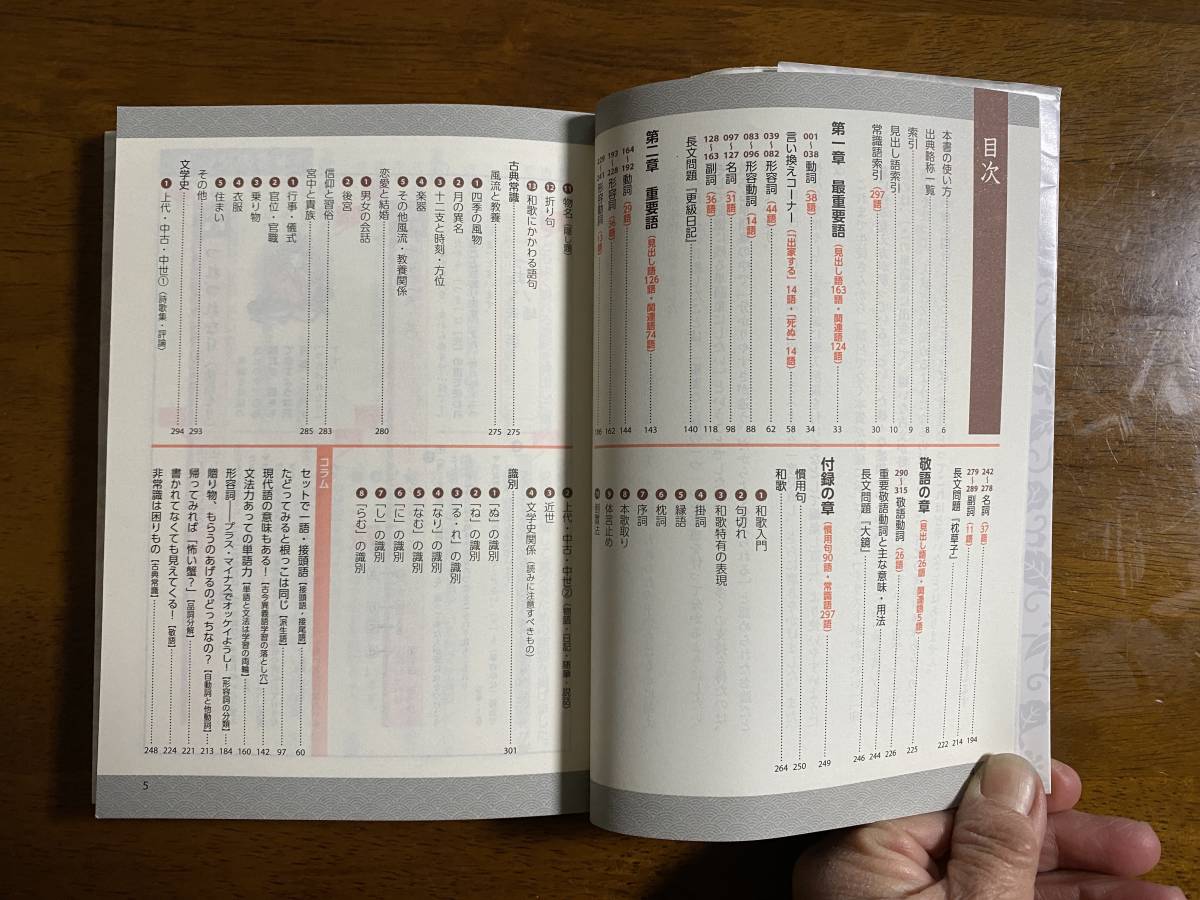 目次
本書の使い方 6
出典略称一覧 8
索引 9
見出し語索引 10
常識語索引 297語 30
第一章 最重要語(見出し語163語・関連語124語) 33
001〜038 動詞(38語) 34
言い換えコーナー(「出家する」14語・「死ぬ」14語) 58
039〜082 形容詞(44語) 62
083〜096 形容動詞(14語) 88
097〜127 名詞(31語) 98
128〜163 副詞(36語) 118
長文問題『更級日記』 140
第二章 重要語(見出し語126語・関連語74語) 143
164〜192 動詞(29語) 144
形容詞 162
形容動詞
242〜278 名詞(37語) 194
279〜289 副詞(11語) 214
長文問題『枕草子』 222
敬語の章(見出し語26語・関連語5語) 225
290〜315 敬語動詞(26語) 226
重要敬語動詞と主な意味・用法 244
長文問題『大鏡』 246
付録の章(慣用句90語・常識語297語) 249
慣用句 250
和歌 264
❶ 和歌入門
❷ 句切れ
❸ 和歌特有の表現
❹ 掛詞
❺ 縁語
❻ 枕詞
❼ 序詞
❽ 本歌取り
❾ 体言止め
⓫ 物名(隠し題)
⓬ 折り句
⓭ 和歌にかかわる語句
古典常識 275
風流と教養 275
❶ 四季の風物
❷ 月の異名
❸ 十二支と時刻・方位
❹ 楽器
❺ その他風流・教養関係
恋愛と結婚 280
❶ 男女の会話
❷ 後宮
信仰と習俗 283
宮中と貴族 285
❶ 行事・儀式
❷ 官位・官職
❸ 乗り物
❹ 衣服
❺ 住まい
その他 293
文学史 294
❶ 上代・中古・中世①(詩歌集・評論)
❷ 上代・中古・中世②(物語・日記・随筆・説話)
❸ 近世
❹ 文学史関係(読みに注意すべきもの)
識別 301
❶「ぬ」の識別
❷「ね」の識別
❸「る・れ」の識別
❹「なり」の識別
❺「なむ」の識別
❻「に」の識別
❼「し」の識別
❽「らむ」の識別
コラム
セットで一語・接頭語【接頭語・接尾語】 60
たどってみると根っこは同じ【派生語】 97
現代語の意味もある!【古今異義語学習の落とし穴】 142
文法力あっての単語力【単語と文法は学習の両輪】 160
形容詞――プラス・マイナスでオッケイようし!【形容詞の分類】 184
贈り物、もらうのあげるのどっちなの?【自動詞と他動詞】 213
帰ってみれば「怖い蟹?」【品詞分解】 221
書かれてなくても見えてくる!【敬語】 224
非常識は困りもの【古典常識】 248
5